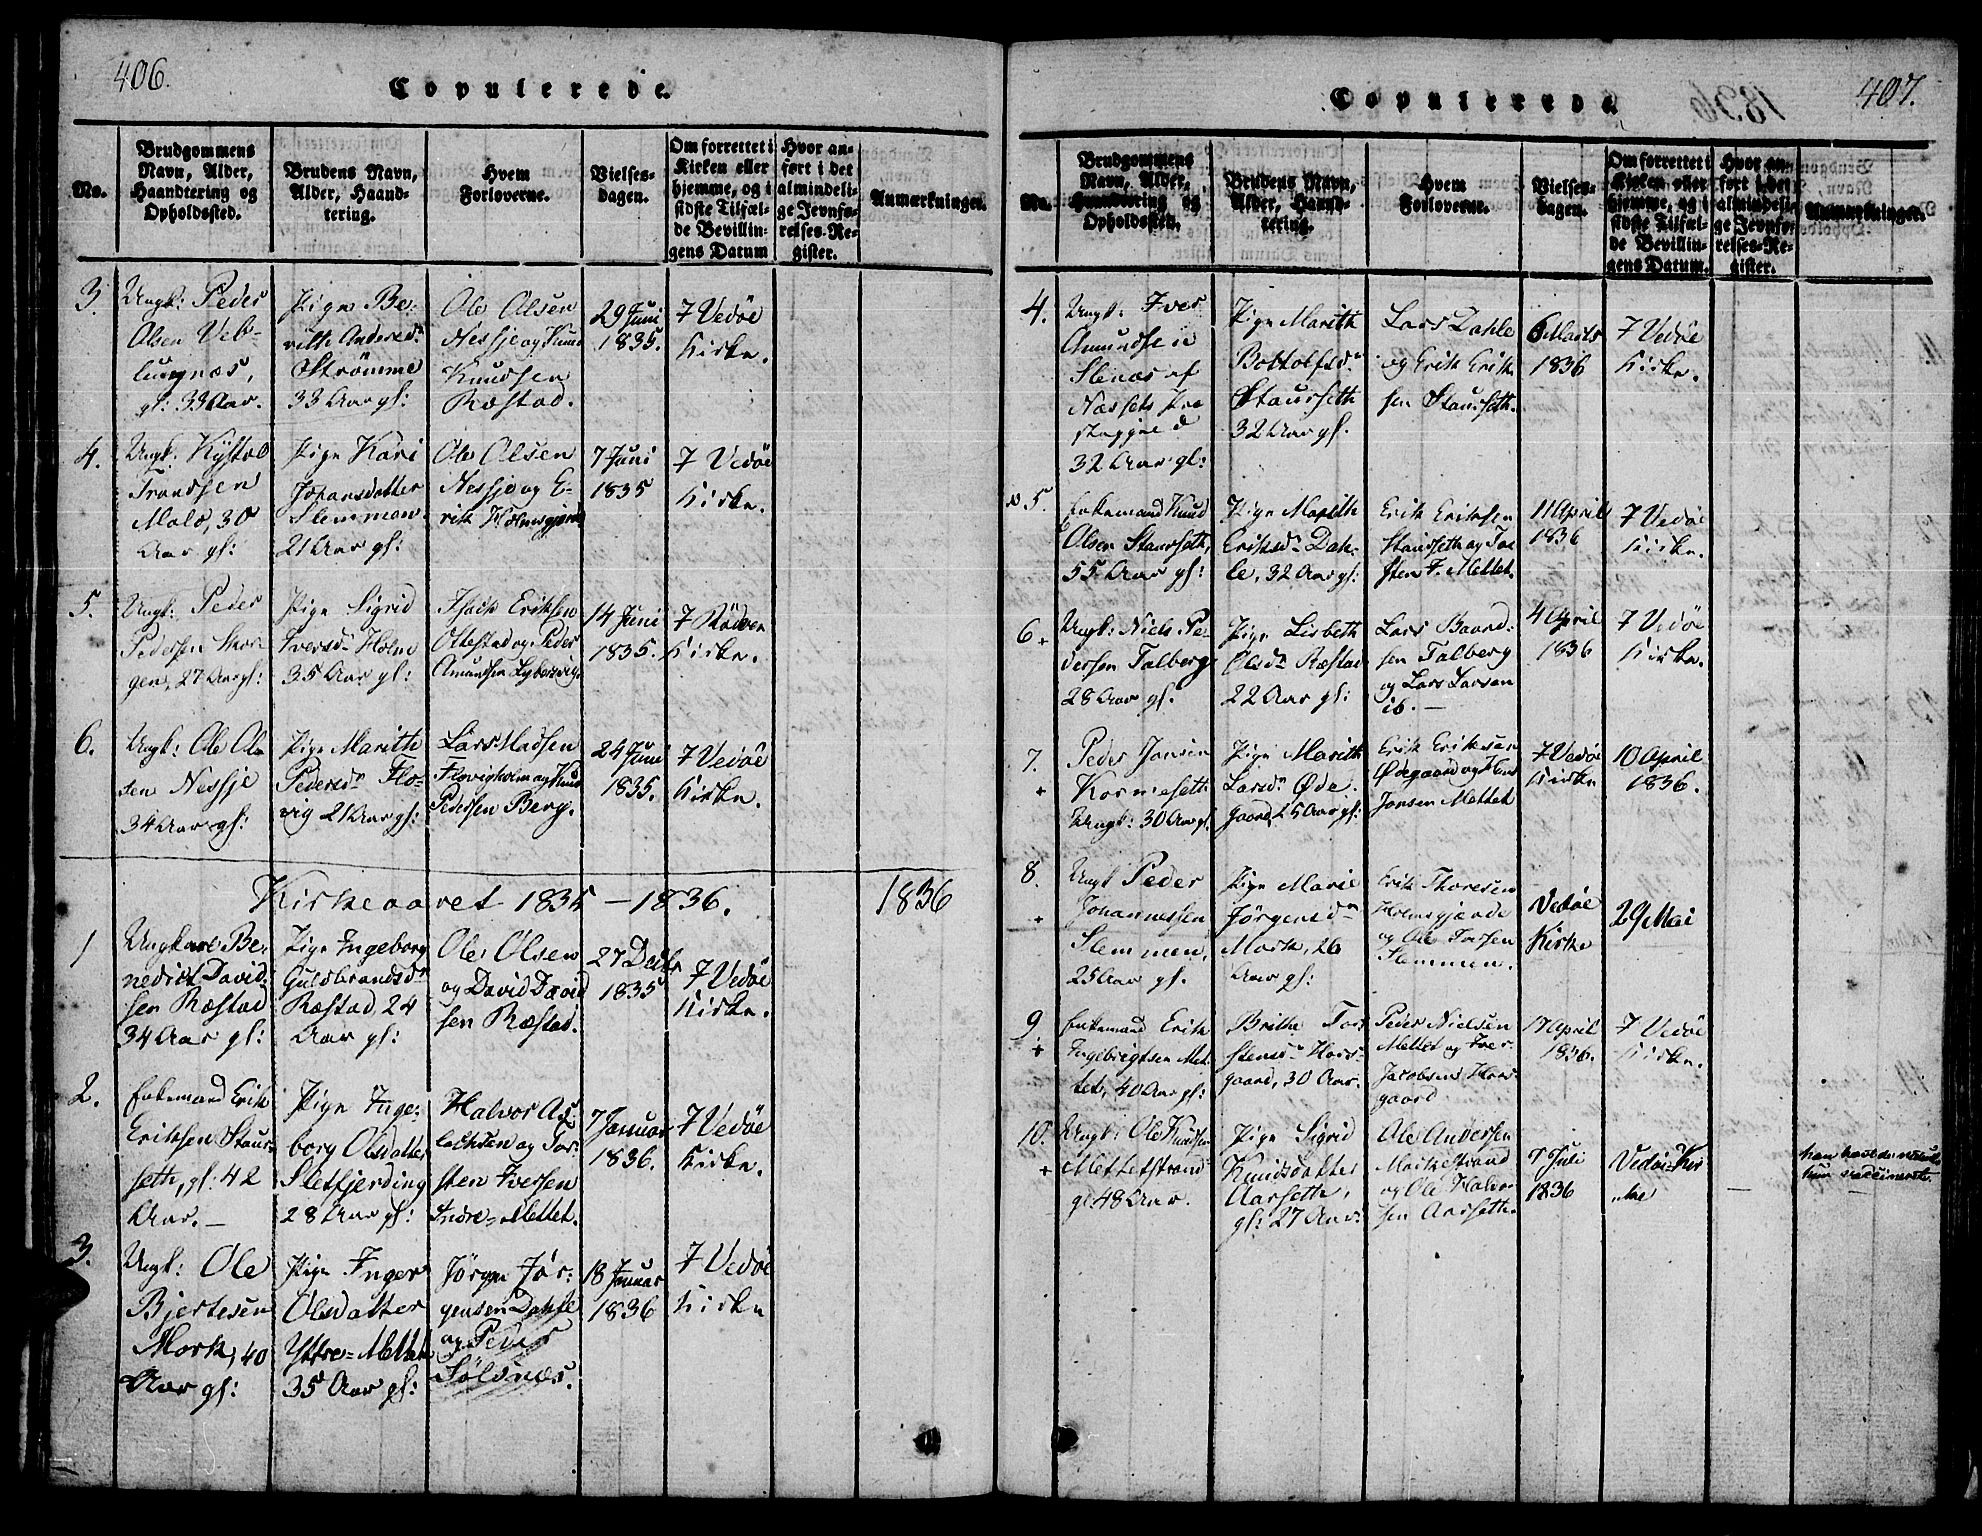 406.
Copulerede.
No.
Brudgommens
Navn, Alder,
Haandtering og
Opholdssted.
Brudens Navn,
Alder, Haand-
tering.
Hvem
Forloverne.
Vielses-
dagen.
Om forrettet i
Kirken eller
hjemme, og i
sidste Tilfæl-
de Bevillin-
gens Datum
Hvor an-
ført i det
almindeli-
ge Jevnfø-
relses-Re-
gister.
Anmærkninger.
3.
Ungk: Peder
Olsen Veb-
lungnæs,
gl: 33 Aar.
Pige Be-
rith Andersd.
Strømme
33 Aar gl:
Ole Olsen
Nessje og Knud
Knudsen
Ræstad.
29 Juni
1835.
7 Vedöe
Kirke.
4.
Ungk:
Trondsen
Malo, 30
Aar gl:
Pige Kari
Johansdatter
Slemmen
21 Aar gl:
Ole Olsen
Nessje og E-
rik Holmsgjerde
7 Juni
1835
7 Vedöe
Kirke.
5.
Ungk: Peder
Pedersen
27 Aar gl:
Pige Sigrid
Iversd. Holm
35 Aar gl:
Isach Eriksen
Ollestad og Peder
Amundsen
14 Juni
1835.
7 Rödven
Kirke.
6.
Ungk: Ole Ol-
sen Nessje
34 Aar gl:
Pige Marith
Pedersd. Flo-
vig 21 Aar gl:
Lars Madsen
Flovigholm og Knud
Pedersen Berg.
24 Juni
1835.
7 Vedöe
Kirke.
Kirkeaaret 1835 – 1836.
1836
1
Ungkarl Be-
nedict David-
sen Ræstad
34 Aar gl:
Pige Ingeborg
Guldbrandsd.
Ræstad, 24
Aar gl:
Ole Olsen
og David David
sen Ræstad.
27 Decbr
1835
7 Vedöe
Kirke.
2.
Enkemand Erik
Eriksen Staur-
seth, gl: 42
Aar. –
Pige Inge-
borg Olsdatter
Sletfjerding
28 Aar gl:
Halvor As-
lachsen og Tor-
sten Iversen
Indre-Mettet.
7 Januar
1836.
7 Vedöe
Kirke.
3.
Ungk: Ole
Bjertesen
Mork, 40
Aar gl:
Pige Inger
Olsdatter
Yttre-Mettet
35 Aar gl:
Jörgen Jör-
gensen Dahle
og Peder
Sölsnæs.
18 Januar
1836
7 Vedöe
Kirke
407.
Copulerede.
No.
Brudgommens
Navn, Alder,
Haandtering og
Opholdssted.
Brudens Navn,
Alder, Haand-
tering.
Hvem
Forloverne.
Vielses-
dagen.
Om forrettet i
Kirken eller
hjemme, og i
sidste Tilfæl-
de Bevillin-
gens Datum.
Hvor an-
ført i det
almindeli-
ge Jevnfø-
relses-Re-
gister.
Anmærkninger.
4.
Ungk: Iver
Amundsen
Slenæs af
Næssets Præ
stegjeld
32 Aar gl:
Pige Marith
Bottolfsd.
Staurseth
32 Aar gl.
Lars Dahle
og Erik Erik
sen Staurseth.
6 Marts
1836
7 Vedöe
Kirke.
5.
Enkemand Knud
Olsen Staurseth,
55 Aar gl:
Pige Marith
Eriksd. Dah-
le, 32 Aar gl:
Erik Eriksen
Staurseth og Tor
sten I. Mettet.
11 April
1836
7 Vedöe
Kirke.
6
+
Ungk: Niels Pe-
dersen Talberg
28 Aar gl.
Pige Lisbeth
Olsd. Ræstad
22 Aar gl:
Lars Baard-
sen Talberg
og Lars Larsen
ib. –
4 April
1836
7 Vedöe
Kirke.
7.
+
Peder Jansen
Korsieseth
Ungk: 30 Aar gl.
Pige Marith
Larsd. Øde-
gaard, 25 Aar gl:
Erik Eriksen
Ødegaard og
Jonsen Mettet
7 Vedöe
Kirke
10 April
1836.
8.
+
Ungk Peder
Johannessen
Slemmen,
25 Aar gl.
Pige Marie
Jörgensd.
Mork, 26
Aar gl:
Erik Thoresen
Holmsgjærde
og Ole Iversen
Slemmen.
Vedöe
Kirke
29 Mai
9.
+
Enkemand Erik
Ingebrigtsen Met-
tet, 40 Aar gl:
Brithe Tor
stensd. Hors-
gaard, 30 Aar.
Peder Nielsen
Mettet og Iver
Jacobsen Hors
gaard
17 April
1836.
7 Vedöe
Kirke.
10.
+
Ungk: Ole Knudsen
Mettetstrand
gl: 48 Aar.
Pige Sigrid
Knudsdatter
Aarseth,
gl: 27 Aar.
Ole Andersen
Morkestrand
og Ole Halvor-
sen Aarseth.
7 Juli
1836
Vedöe-Kir
ke
–
han havde naturlige
hun vaccineret.